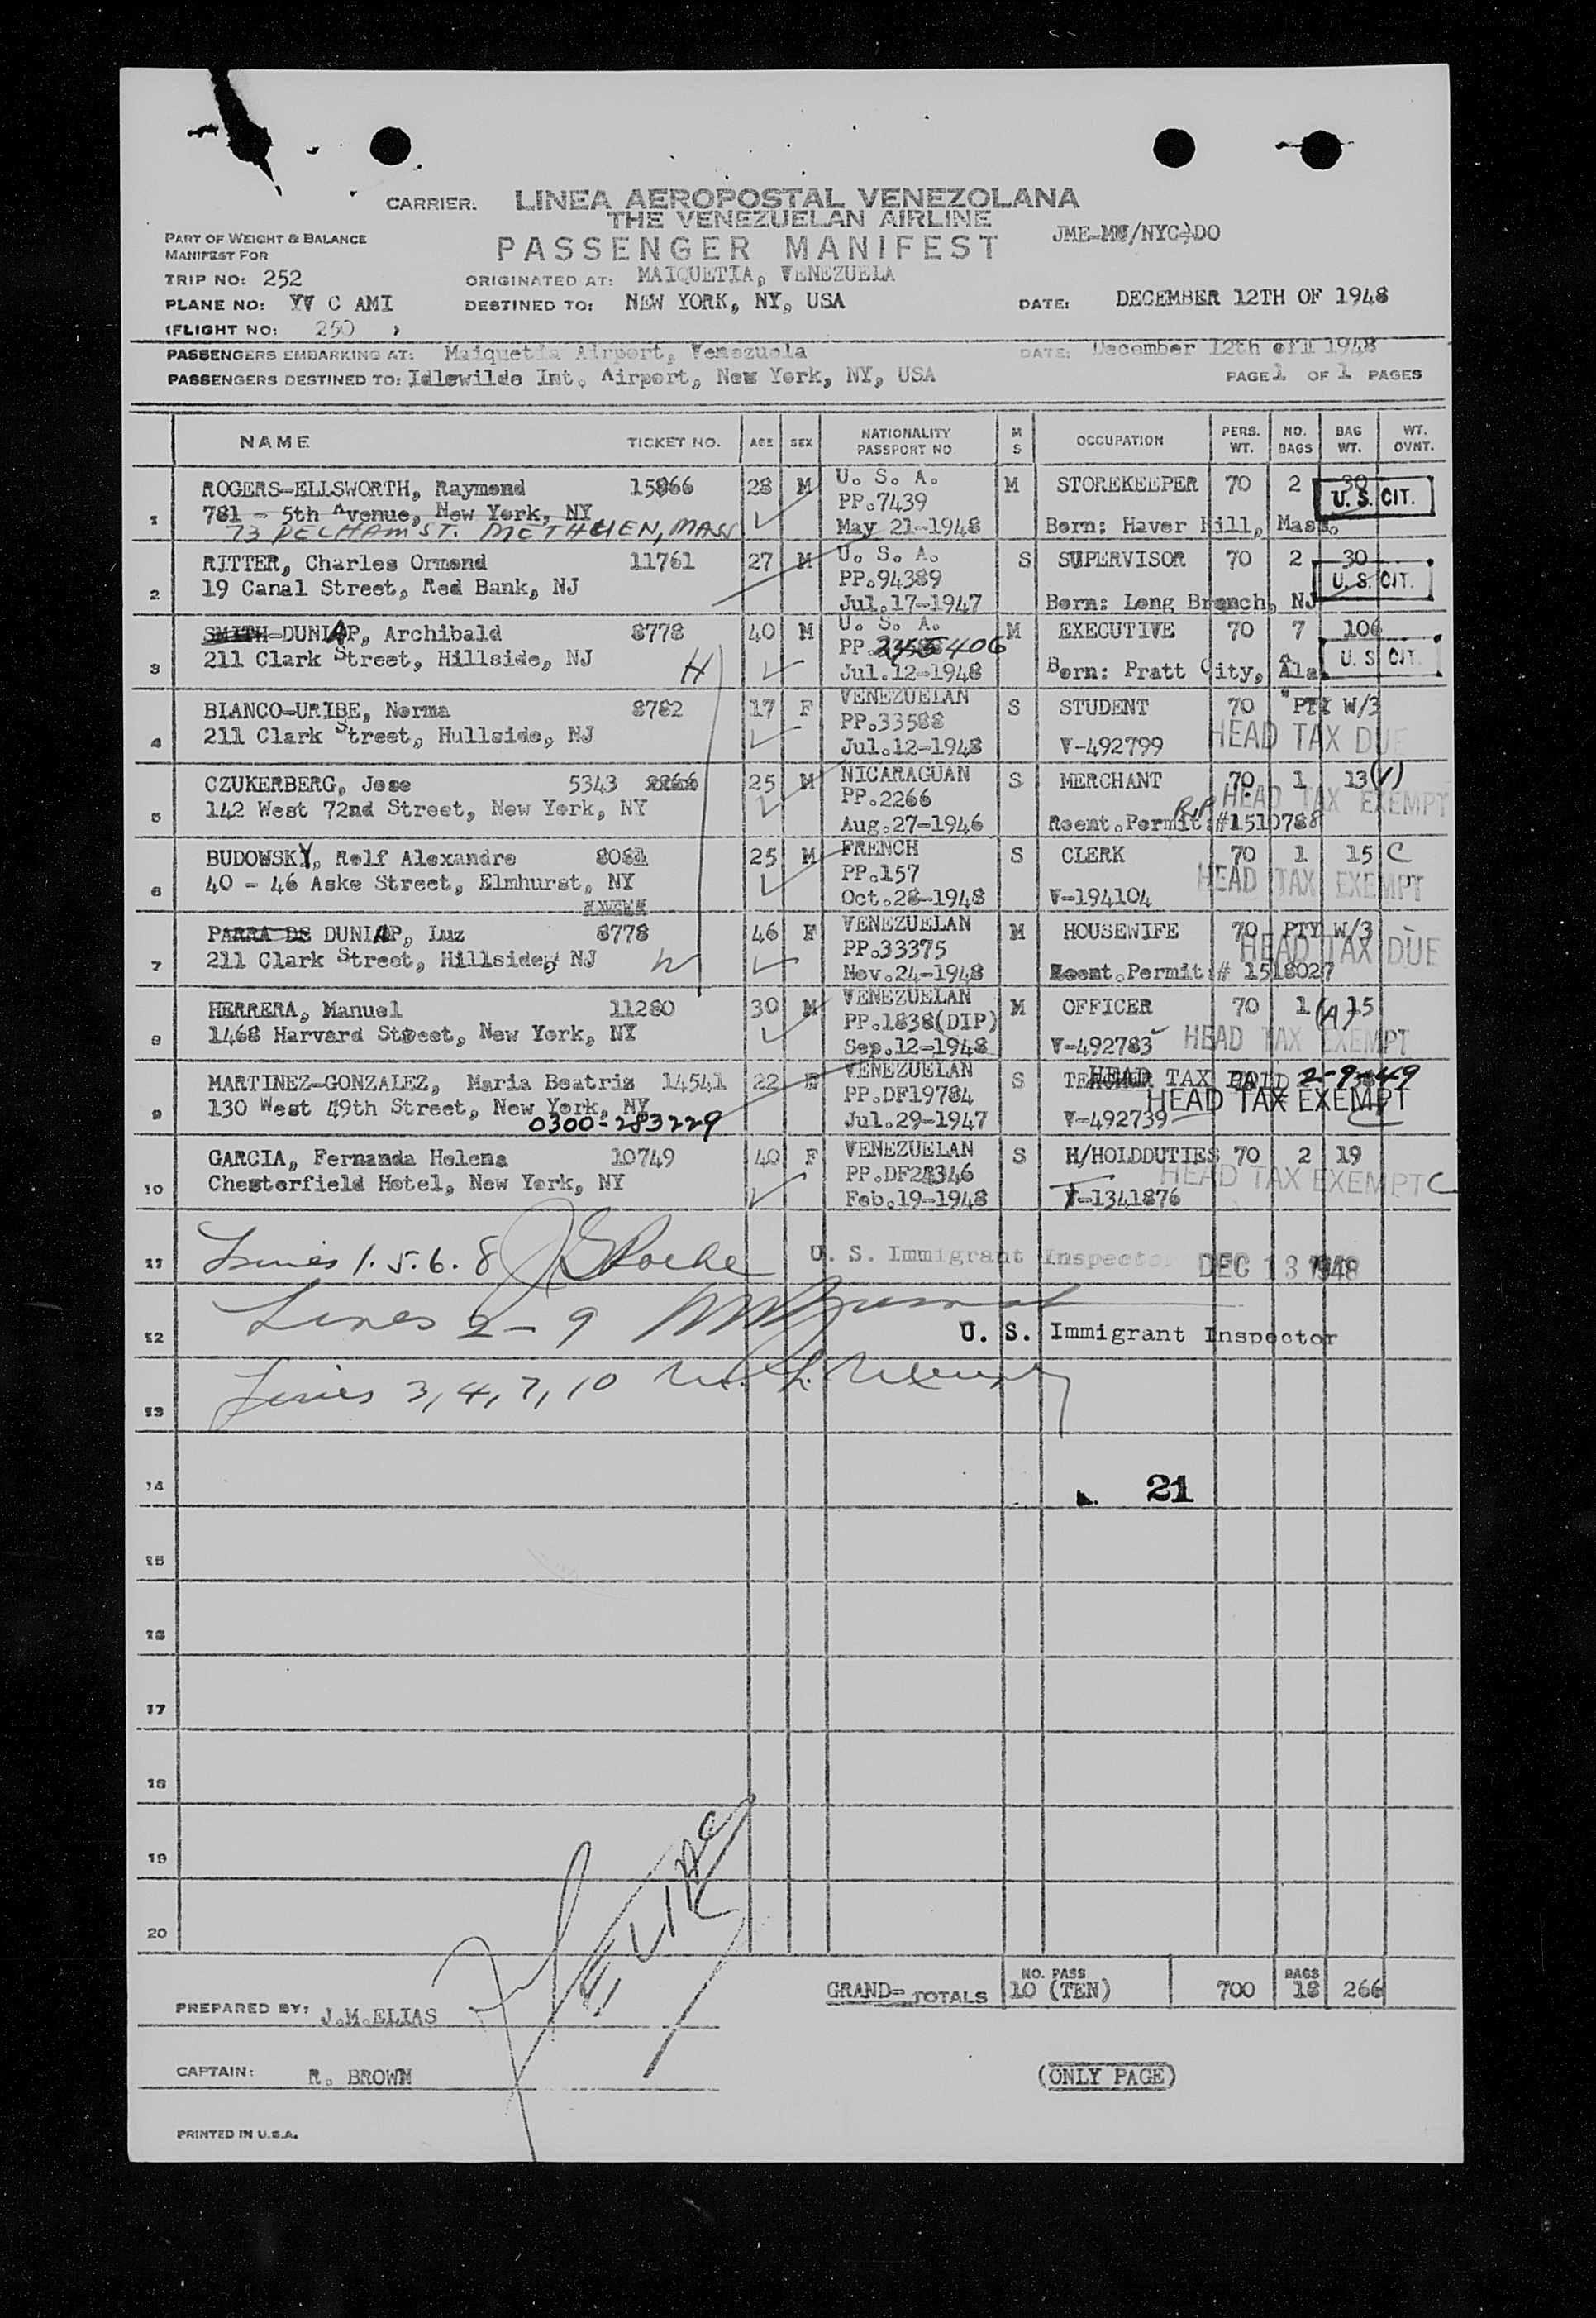 CARRIER: LINEA AEROPOSTAL VENEZOLANA
THE VENEZUELAN AIRLINE
PART OF WEIGHT & BALANCE
MANIFEST FOR
PASSENGER MANIFEST
TRIP NO: 252
ORIGINATED AT: MAIQUETIA, VENEZUELA
PLANE NO: YV C AMI
DESTINED TO: NEW YORK, NY, USA
DATE: DECEMBER 12TH OF 1948
(FLIGHT NO: 250 )
PASSENGERS EMBARKING AT: Maiquetia Airport, Venezuela
DATE: December 12th of 1948
PASSENGERS DESTINED TO: Idlewilde Int. Airport, New York, NY, USA
PAGE 1 OF 1 PAGES
NAME TICKET NO. AGE SEX NATIONALITY PASSPORT NO M S OCCUPATION PERS. WT. NO. BAGS BAG WT. WT. OVNT.
ROGERS-ELLSWORTH, Raymond 15866 28 M U. S. A. M STOREKEEPER 70 2 30
781 - 5th Avenue, New York, NY PP.7439 U. S. CIT.
1 73 PELHAM ST. METHUEN, MASS May 21-1948 Born: Haver Hill, Mass.
RITTER, Charles Ormond 11761 27 M U. S. A. S SUPERVISOR 70 2 30
2 19 Canal Street, Red Bank, NJ PP.94389 U. S. CIT.
Jul.17-1947 Born: Long Branch, NJ
SMITH-DUNLAP, Archibald 8778 40 M U. S. A. M EXECUTIVE 70 7 106
3 211 Clark Street, Hillside, NJ H PP. 406 U. S. CIT.
Jul.12-1948 Born: Pratt City, Ala
BIANCO-URIBE, Norma 8782 17 F VENEZUELAN S STUDENT 70 PTY W/3
4 211 Clark Street, Hullside, NJ PP.33588 HEAD TAX DUE
Jul.12-1948 V-492799
CZUKERBERG, Jose 5343 25 M NICARAGUAN S MERCHANT 70 1 13 (V)
5 142 West 72nd Street, New York, NY PP.2266 R.P. HEAD TAX EXEMPT
Aug.27-1946 Reent.Permit:#1510788
BUDOWSKY, Rolf Alexandre 8081 25 M FRENCH S CLERK 70 1 15 C
6 40 - 46 Aske Street, Elmhurst, NY PP.157 HEAD TAX EXEMPT
Oct.28-1948 V-194104
PARRA DE DUNLAP, Luz 8778 46 F VENEZUELAN M HOUSEWIFE 70 PTY W/3
7 211 Clark Street, Hillside, NJ PP.33375 HEAD TAX DUE
Nov.24-1948 Reent.Permit:# 1518027
HERRERA, Manuel 11280 30 M VENEZUELAN M OFFICER 70 1 (A) 15
8 1468 Harvard Street, New York, NY PP.1838(DIP) HEAD TAX EXEMPT
Sep.12-1948 V-492783
MARTINEZ-GONZALEZ, Maria Beatriz 14541 22 F VENEZUELAN S TEACHER HEAD TAX PAID 2-9-49
9 130 West 49th Street, New York, NY PP.DF19784 HEAD TAX EXEMPT
0300-283229 Jul.29-1947 V-492739
GARCIA, Fernanda Helena 10749 40 F VENEZUELAN S H/HOLDDUTIES 70 2 19
10 Chesterfield Hotel, New York, NY PP.DF28346 HEAD TAX EXEMPT C
Feb.19-1948 V-1341876
11 Lines 1.5.6.8 U. S. Immigrant Inspector DEC 13 1948
12 Lines 2-9 U. S. Immigrant Inspector
13 Lines 3,4,7,10
14 21
15
16
17
18
19
20
GRAND= TOTALS NO. PASS 10 (TEN) 700 BAGS 18 266
PREPARED BY: J.M.ELIAS
CAPTAIN: R. BROWN
(ONLY PAGE)
PRINTED IN U.S.A.